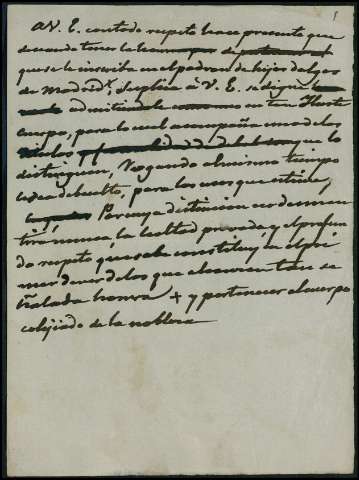 1
A V. E. con todo respeto hace presente que
deseando tener la honra de
que se le inscriba en el padron de hijos dalgos
de Madrid, Suplica à V. E. se digne
admitirle en tan Ilustre
cuerpo, para lo cual acompaña uno de los
titulos que lo
distinguen, Rogando al mismo tiempo
le sea devuelto, para los usos que estime,
Por cuya distincion no desmen
tirá nunca la lealtad pro y el profun
do respeto que constituye el pri
mer deber de los que alcanzan tan se
ñalada honra + y pertenecer al cuerpo
colejiado de la nobleza